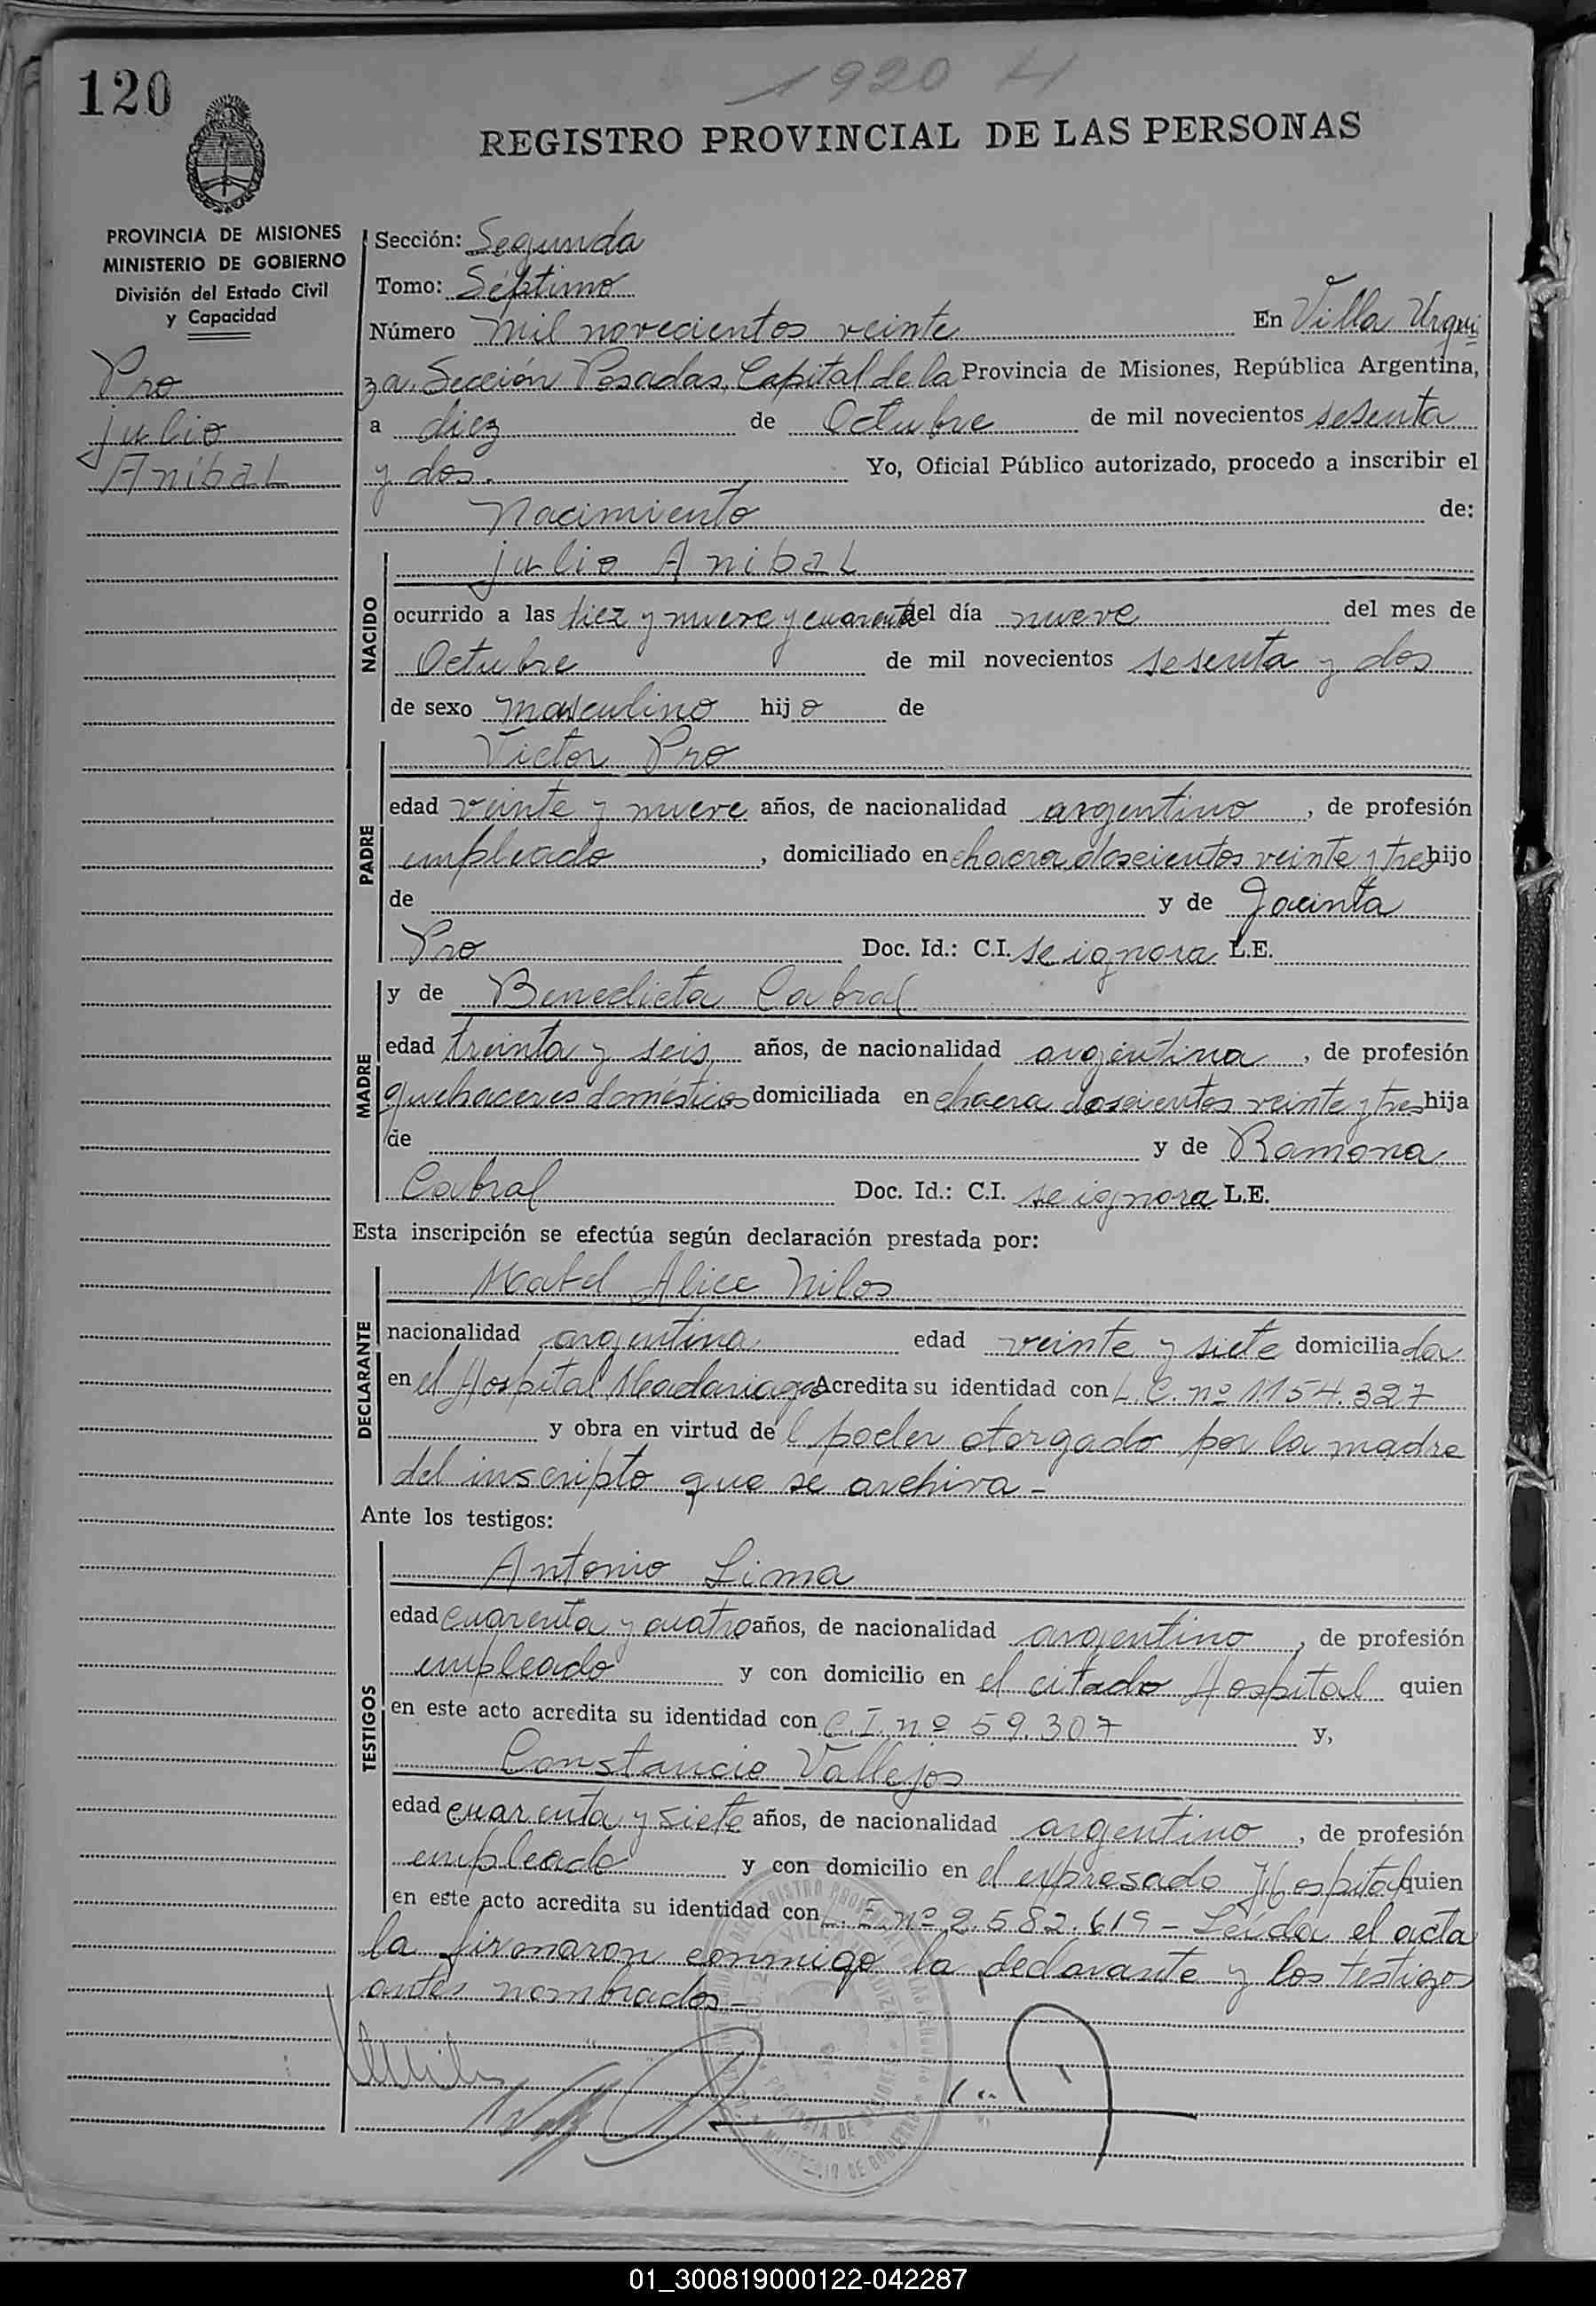 120
1920 H
REGISTRO PROVINCIAL DE LAS PERSONAS
PROVINCIA DE MISIONES
MINISTERIO DE GOBIERNO
División del Estado Civil
y Capacidad
Pro
julio
Anibal
Sección: Segunda
Tomo: Séptimo
Número mil novecientos veinte En Villa Urqui
za, Sección Posadas, Capital de la Provincia de Misiones, República Argentina,
a diez de Octubre de mil novecientos sesenta
y dos. Yo, Oficial Público autorizado, procedo a inscribir el
Nacimiento de:
NACIDO
julio Anibal
ocurrido a las diez y nueve y cuarenta del día nueve del mes de
Octubre de mil novecientos sesenta y dos
de sexo masculino hijo de
PADRE
Victor Pro
edad veinte y nueve años, de nacionalidad argentino, de profesión
empleado, domiciliado en chacra doscientos veinte y tres hijo
de y de Jacinta
Pro Doc. Id.: C.I. se ignora L.E.
MADRE
y de Benedicta Cabral
edad treinta y seis años, de nacionalidad argentina, de profesión
quehaceres domésticos domiciliada en chacra doscientos veinte y tres hija
de y de Ramona
Cabral Doc. Id.: C.I. se ignora L.E.
Esta inscripción se efectúa según declaración prestada por:
DECLARANTE
Alice Nilos
nacionalidad argentina edad veinte y siete domiciliada
en el Hospital Madariaga Acredita su identidad con L.C. nº 1.154.327
y obra en virtud del poder otorgado por la madre
del inscripto que se archiva -
Ante los testigos:
TESTIGOS
Antonio Lima
edad cuarenta y cuatro años, de nacionalidad argentino, de profesión
empleado y con domicilio en el citado Hospital quien
en este acto acredita su identidad con C.I. nº 59.307 y,
Constancio Vallejos
edad cuarenta y siete años, de nacionalidad argentino, de profesión
empleado y con domicilio en el expresado Hospital quien
en este acto acredita su identidad con L.E. nº 2.582.619 - Leída el acta
la firmaron conmigo la declarante y los testigos
antes nombrados -
01_300819000122-042287